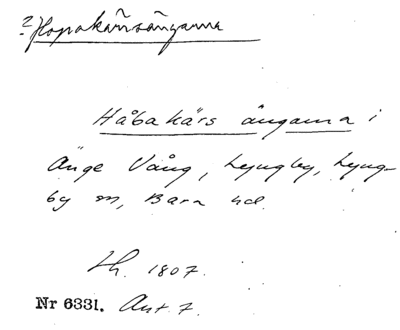 ? Hopakärsängarna
Håbakärs ängarna i
Änge Vång, Lyngby, Lyng-
by sn, Bara hd.
Lh. 1807.
Nr 6331. Ant. 7.